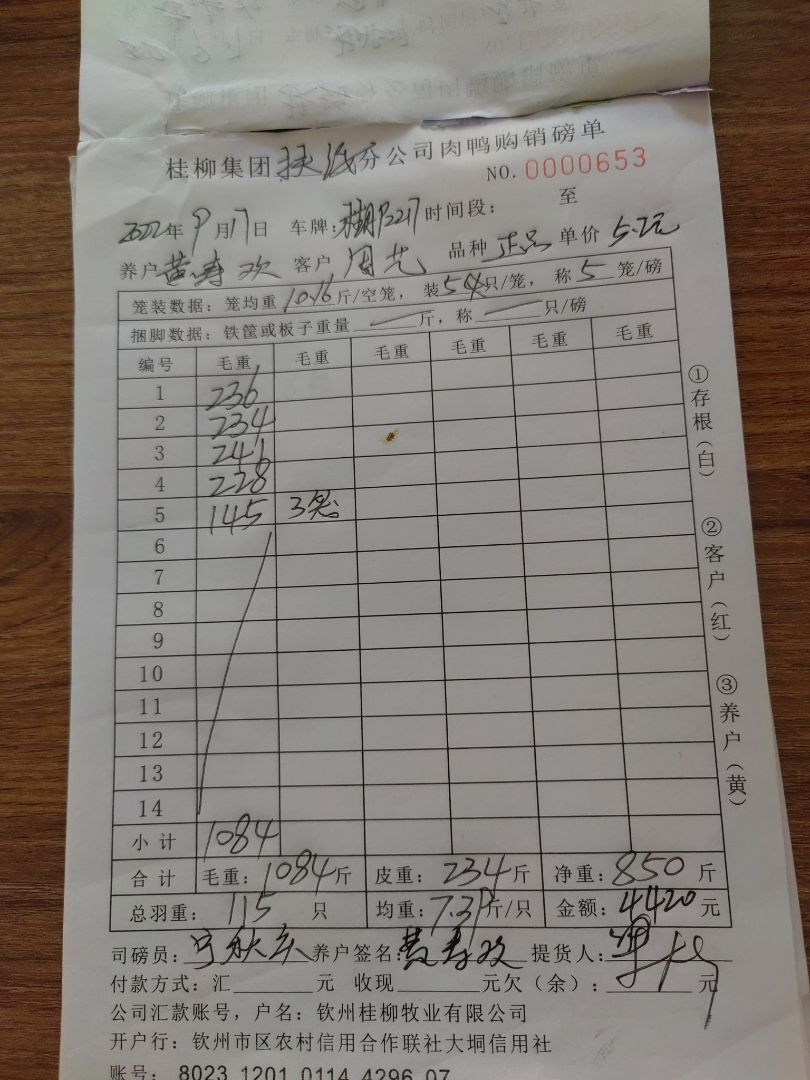 桂柳集团 分公司肉鸭购销磅单
NO. 0000653
2022年9月17日 车牌: 时间段: 至
养户 黄寿欢 客户 周艺 品种 正品 单价 5.2元
笼装数据: 笼均重10.16斤/空笼, 装5 只/笼, 称5笼/磅
捆脚数据: 铁筐或板子重量 斤, 称 只/磅
编号 毛重 毛重 毛重 毛重 毛重 毛重
1 236
2 234
3 241
4 228
5 145 3笼
6
7
8
9
10
11
12
13
14
小计 1084
合计 毛重: 1084斤 皮重: 234斤 净重: 850斤
总羽重: 115 只 均重: 7.39斤/只 金额: 4420元
司磅员: 养户签名: 黄寿欢 提货人:
付款方式: 汇 元 收现 元欠(余): 元
公司汇款账号, 户名: 钦州桂柳牧业有限公司
开户行: 钦州市区农村信用合作联社大垌信用社
账号: 8023 1201 0114 4296 07
①存根(白)
②客户(红)
③养户(黄)